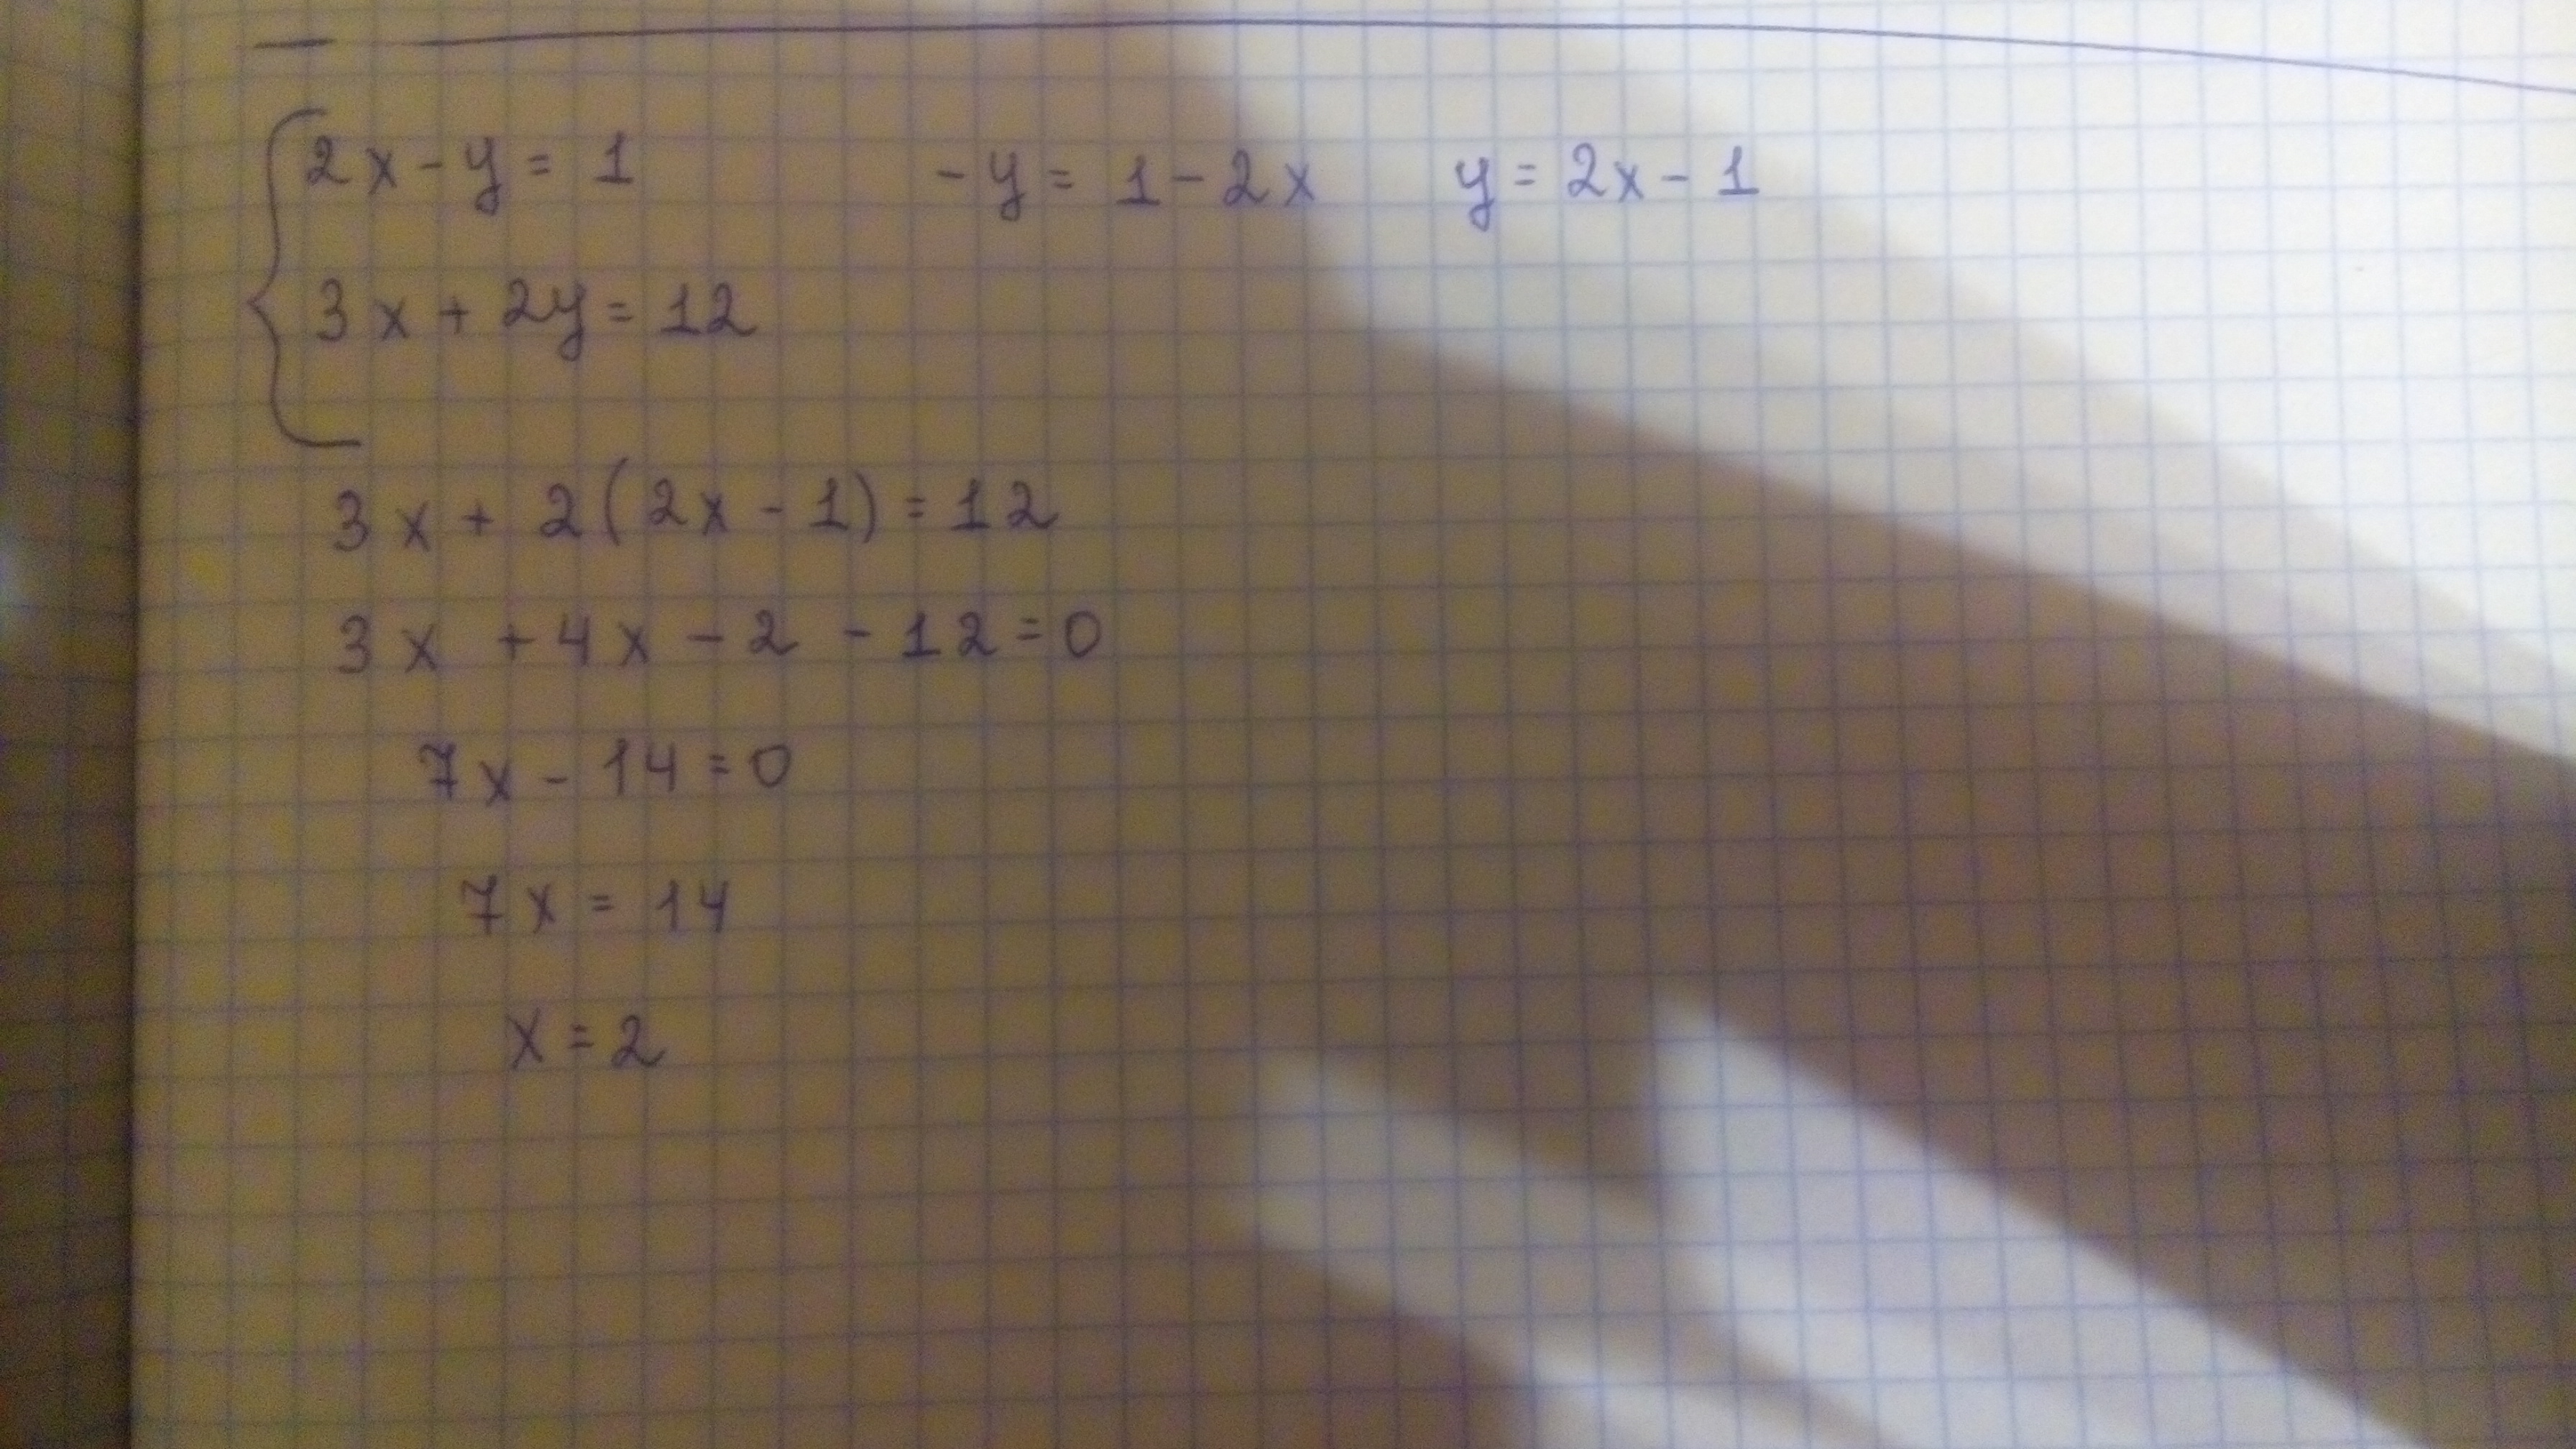 2x - y = 1 -y = 1 - 2x y = 2x - 1
3x + 2y = 12
3x + 2(2x - 1) = 12
3x + 4x - 2 - 12 = 0
7x - 14 = 0
7x = 14
x = 2